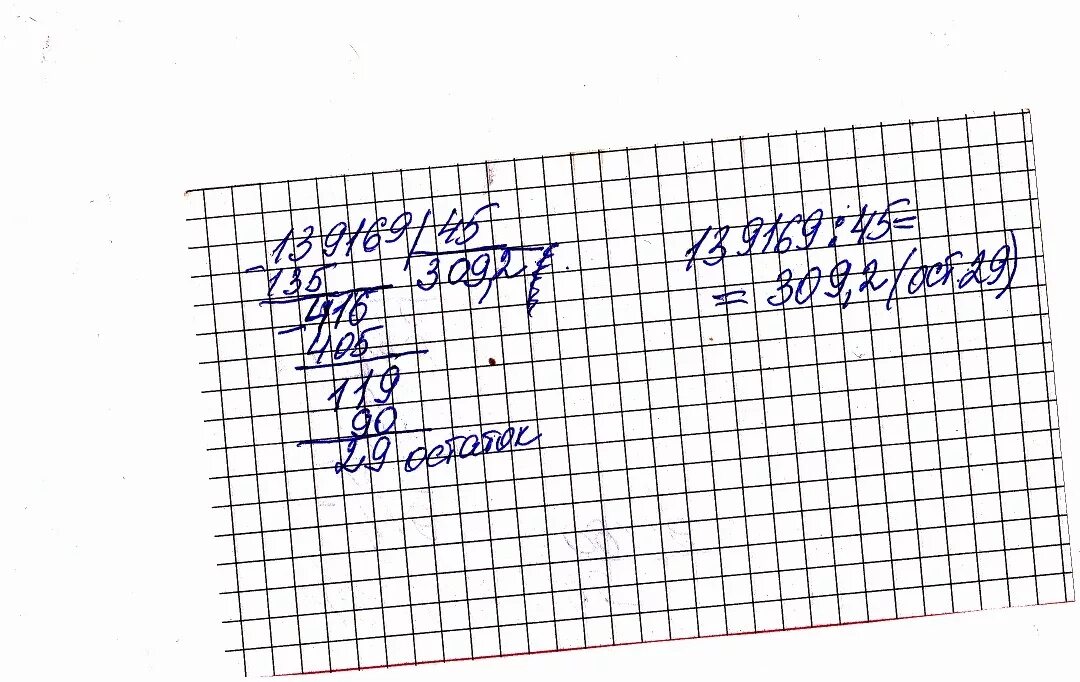 139169 | 45
- 135 309,2
416
- 405
119
90
29 остаток
139169 : 45 =
= 309,2 (ост 29)